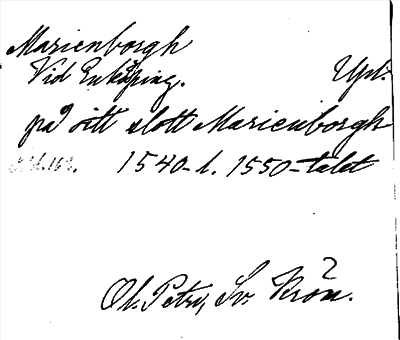 Marienborgh
Vid Enköping. Upl.
på sitt slott Marienborgh
1540-t. 1550-talet
Ol. Petri, Sv. Krön.